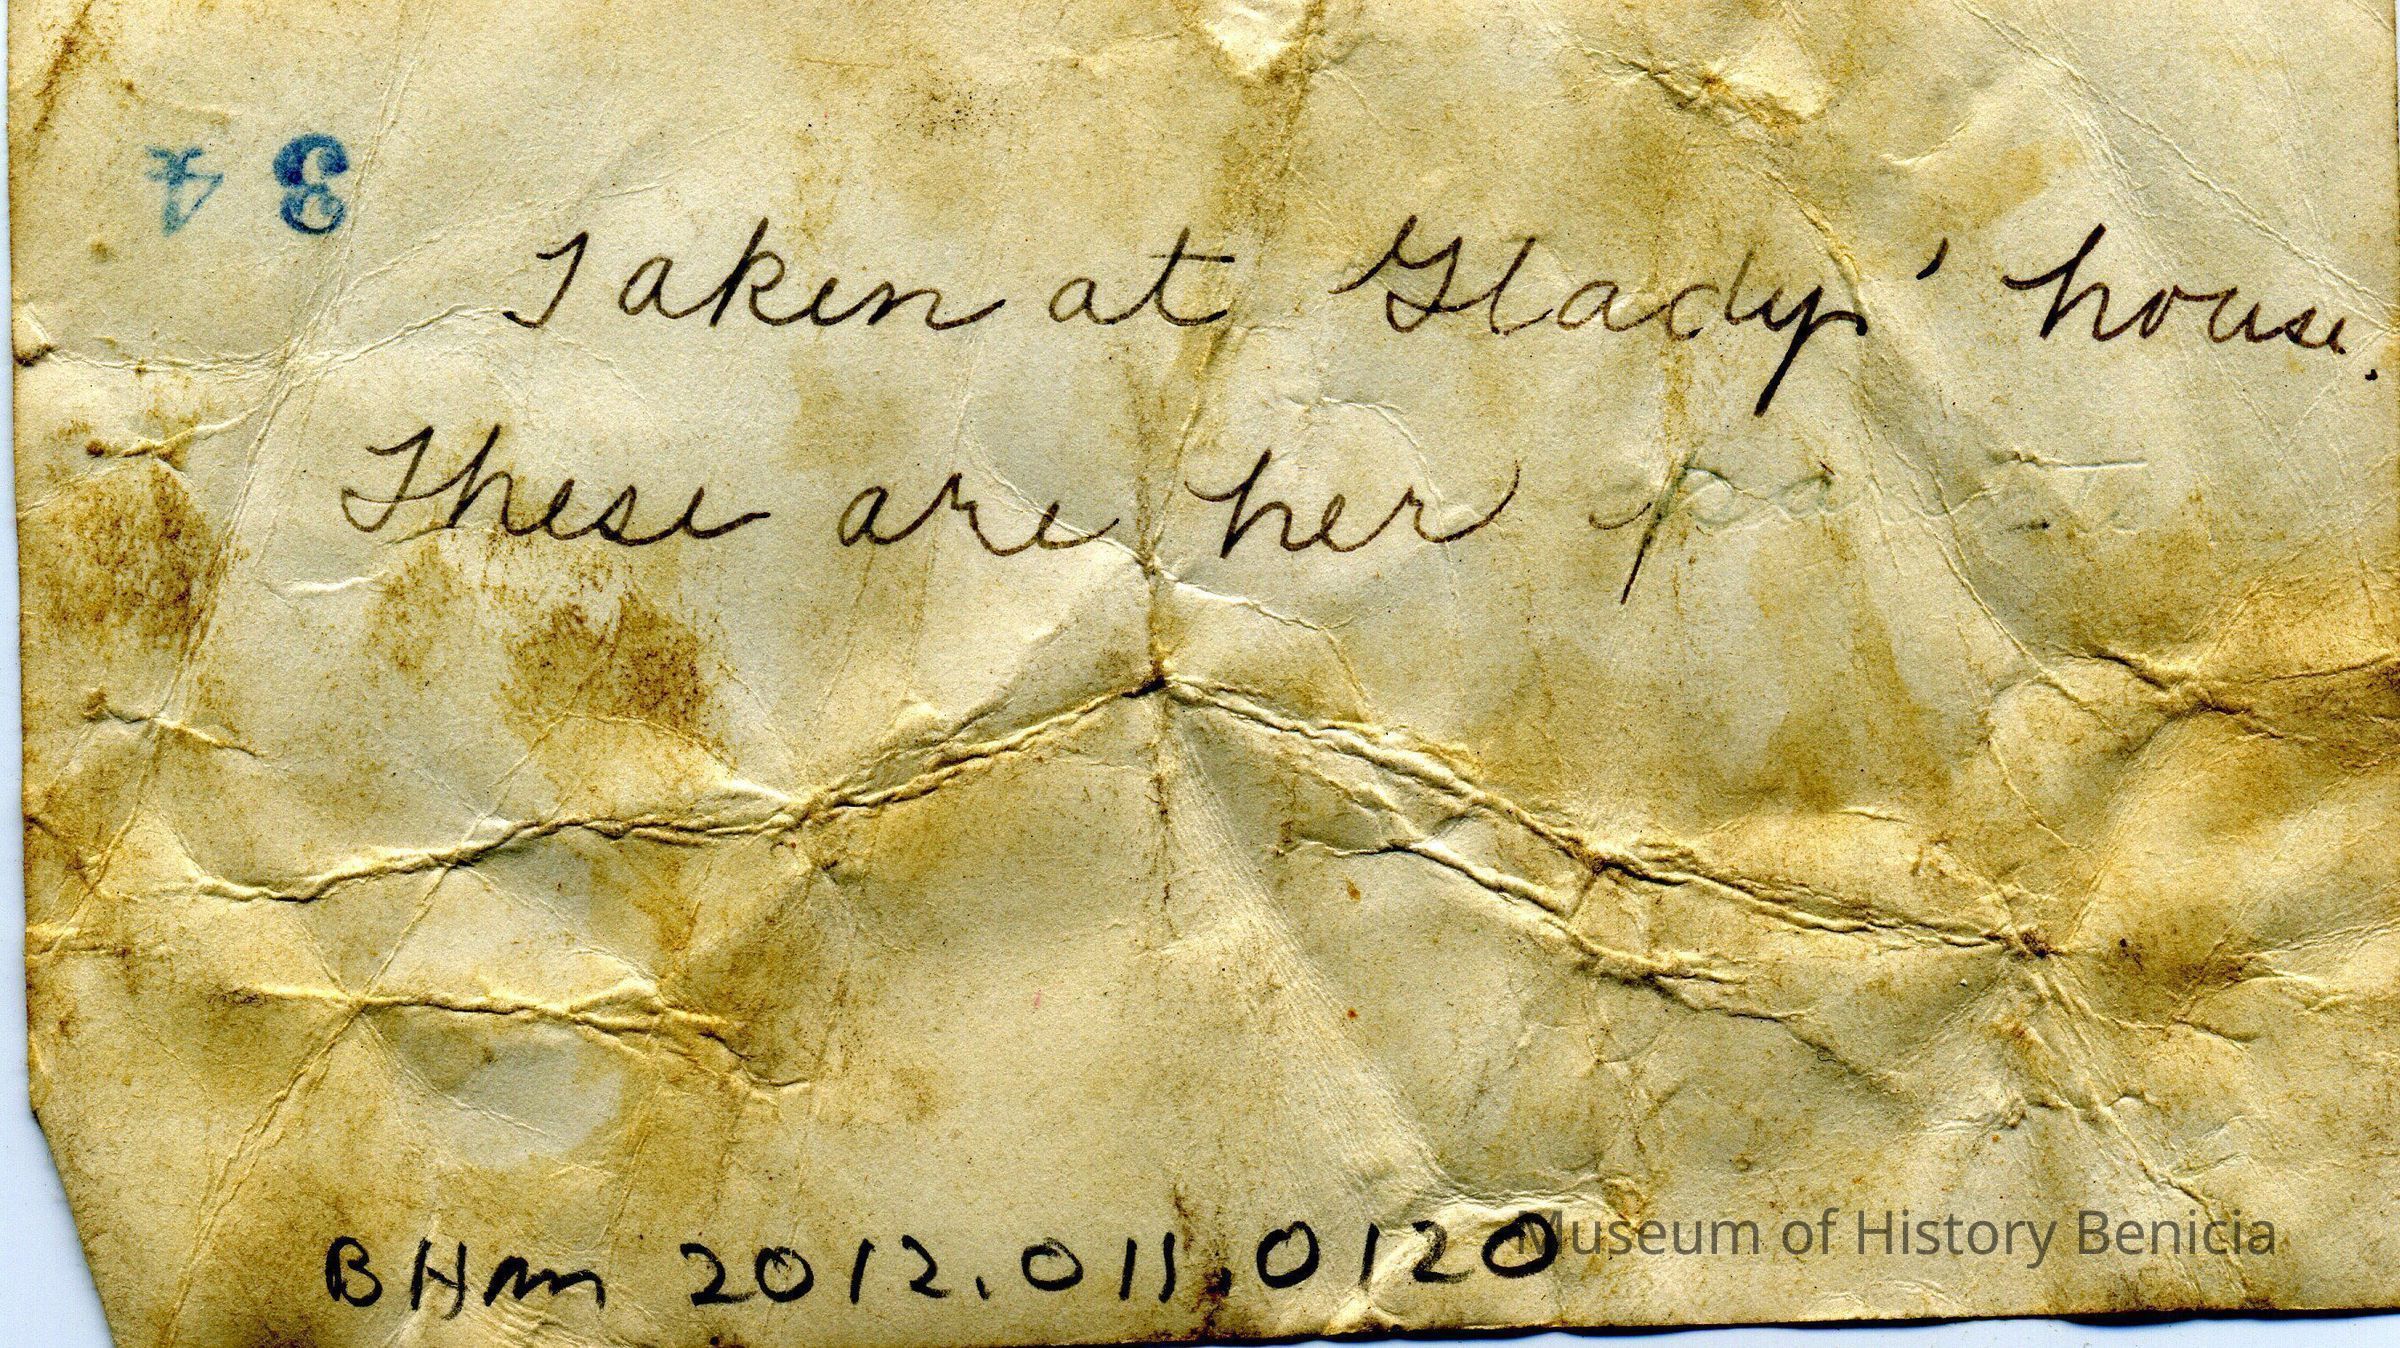 34
Taken at Gladys' house.
These are her
BHm 2012.011.0120
Museum of History Benicia